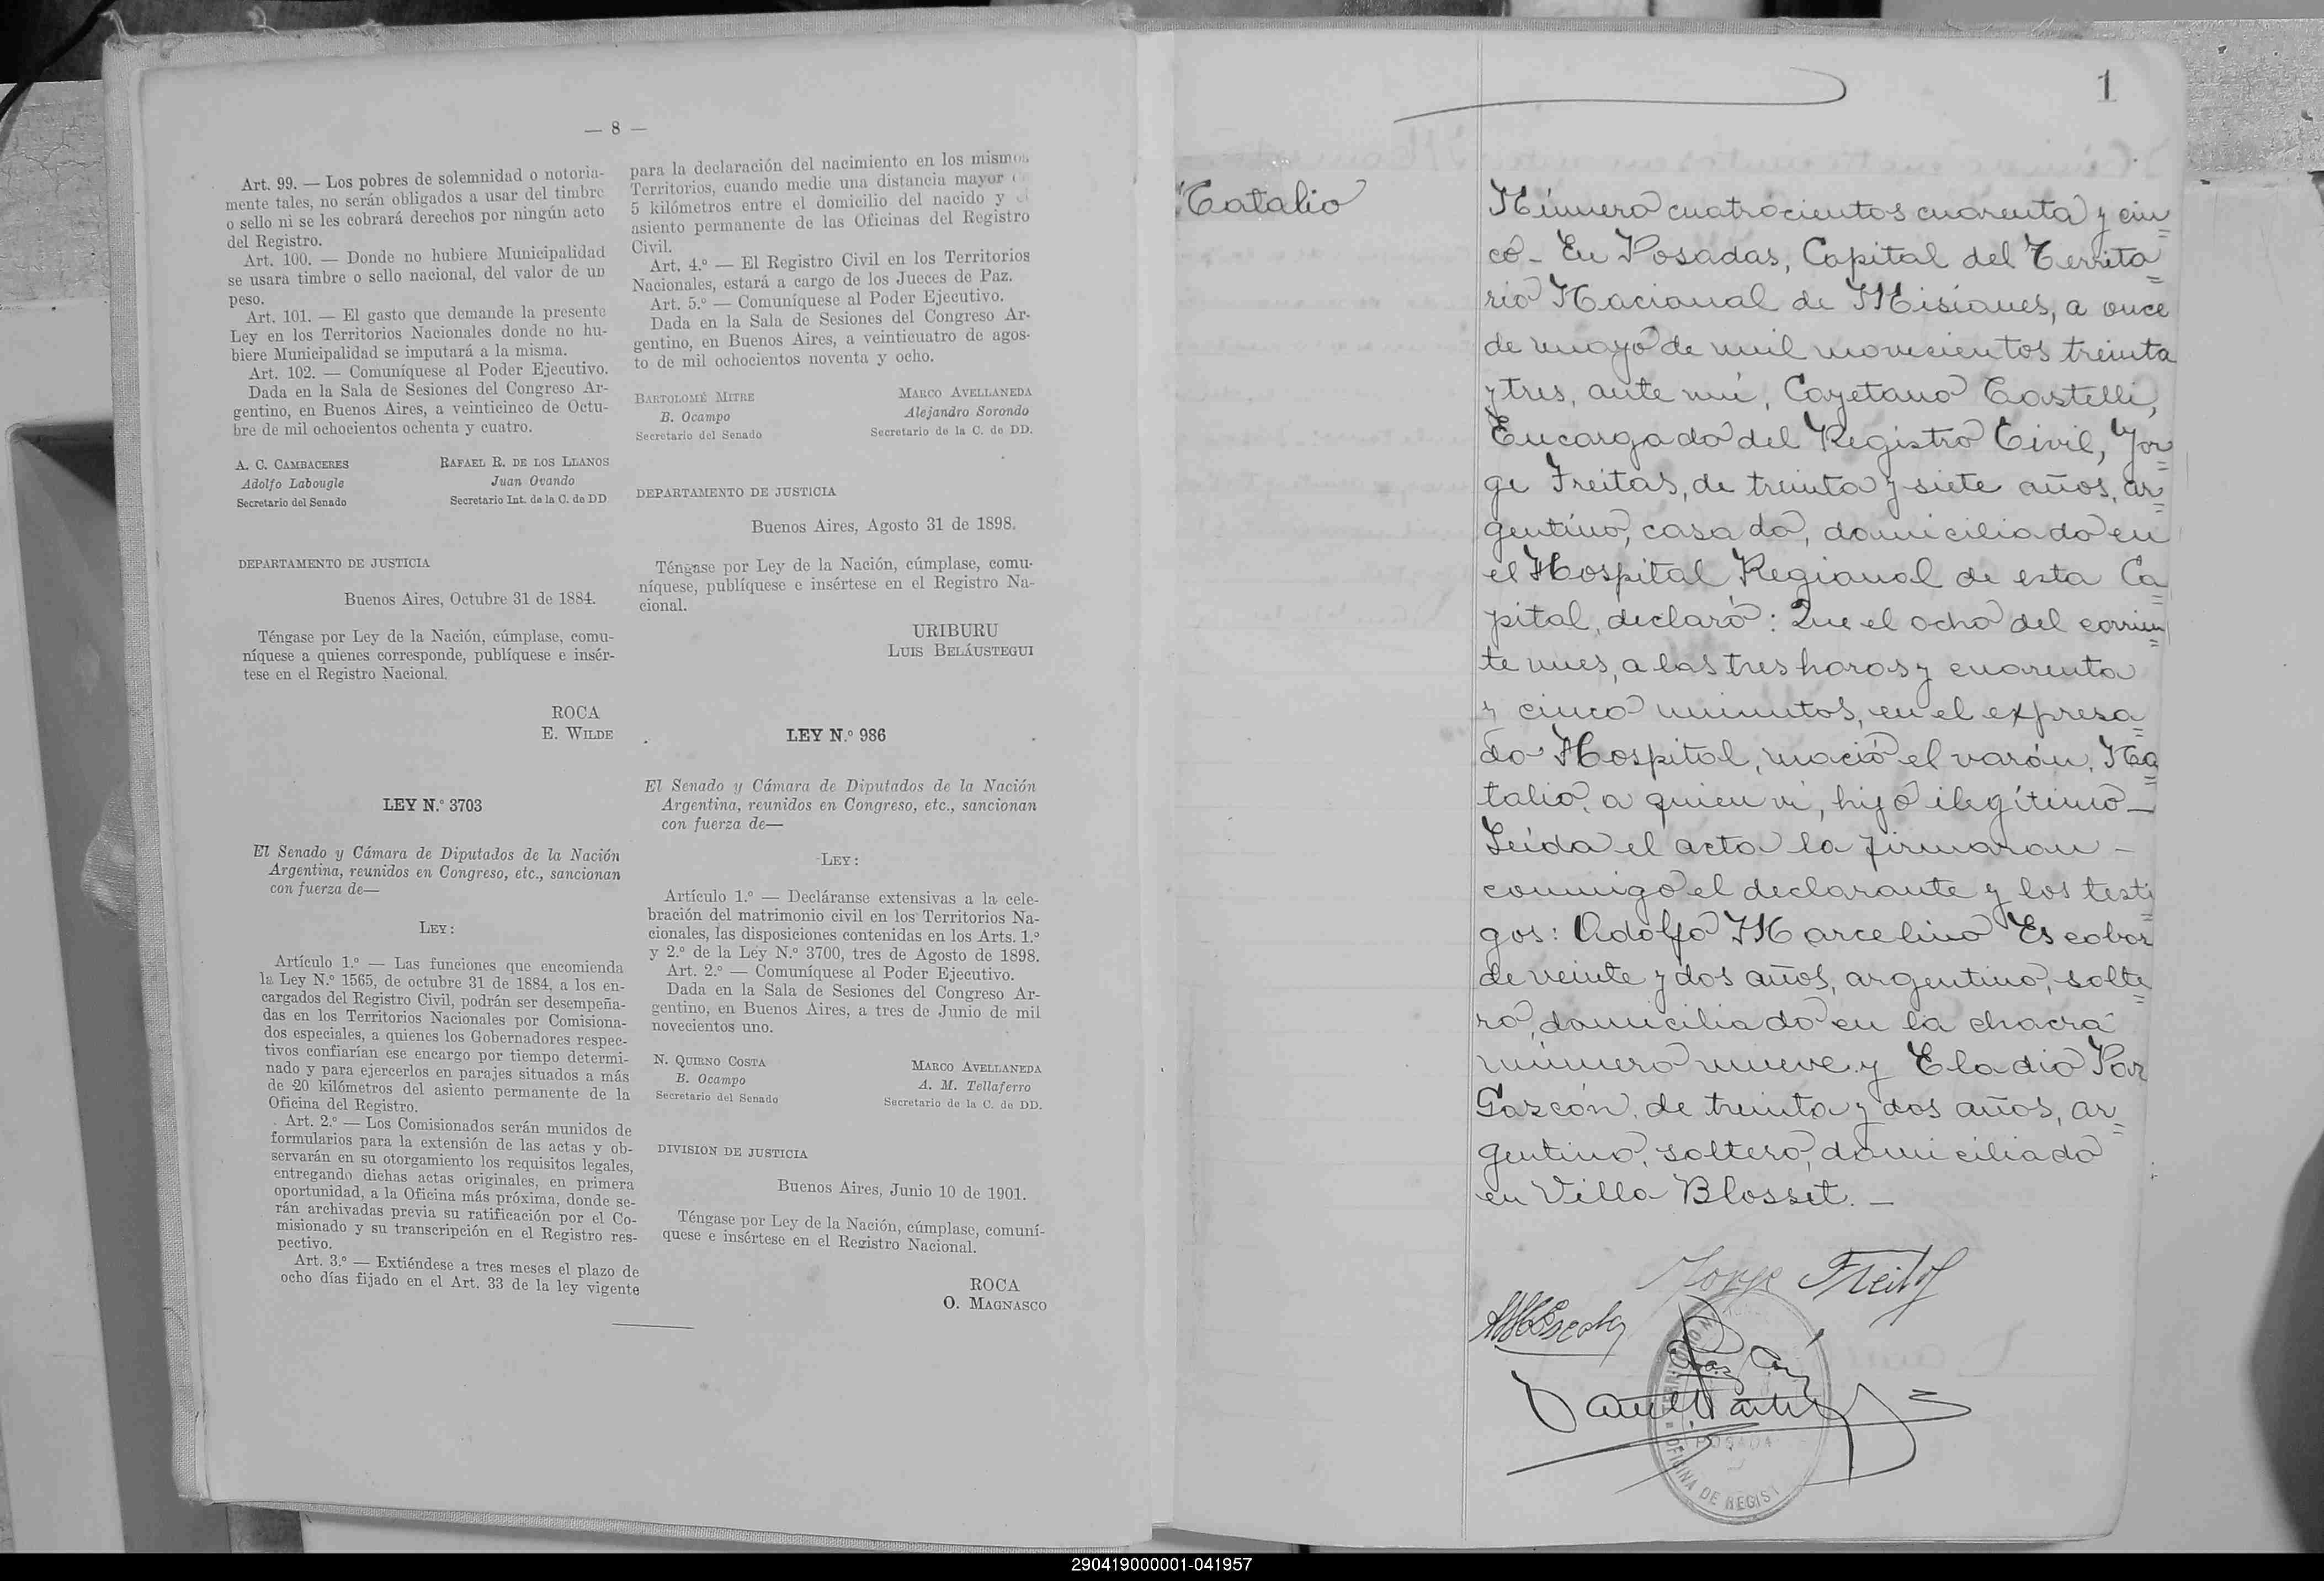 — 8 —
Art. 99. — Los pobres de solemnidad o notoria-
mente tales, no serán obligados a usar del timbre
o sello ni se les cobrará derechos por ningún acto
del Registro.
Art. 100. — Donde no hubiere Municipalidad
se usara timbre o sello nacional, del valor de un
peso.
Art. 101. — El gasto que demande la presente
Ley en los Territorios Nacionales donde no hu-
biere Municipalidad se imputará a la misma.
Art. 102. — Comuníquese al Poder Ejecutivo.
Dada en la Sala de Sesiones del Congreso Ar-
gentino, en Buenos Aires, a veinticinco de Octu-
bre de mil ochocientos ochenta y cuatro.
A. C. CAMBACERES
Adolfo Labougle
Secretario del Senado
RAFAEL R. DE LOS LLANOS
Juan Ovando
Secretario Int. de la C. de DD
DEPARTAMENTO DE JUSTICIA
Buenos Aires, Octubre 31 de 1884.
Téngase por Ley de la Nación, cúmplase, comu-
níquese a quienes corresponde, publíquese e insér-
tese en el Registro Nacional.
ROCA
E. WILDE
LEY N.º 3703
El Senado y Cámara de Diputados de la Nación
Argentina, reunidos en Congreso, etc., sancionan
con fuerza de—
LEY:
Artículo 1.º — Las funciones que encomienda
la Ley N.º 1565, de octubre 31 de 1884, a los en-
cargados del Registro Civil, podrán ser desempeña-
das en los Territorios Nacionales por Comisiona-
dos especiales, a quienes los Gobernadores respec-
tivos confiarían ese encargo por tiempo determi-
nado y para ejercerlos en parajes situados a más
de 20 kilómetros del asiento permanente de la
Oficina del Registro.
Art. 2.º — Los Comisionados serán munidos de
formularios para la extensión de las actas y ob-
servarán en su otorgamiento los requisitos legales,
entregando dichas actas originales, en primera
oportunidad, a la Oficina más próxima, donde se-
rán archivadas previa su ratificación por el Co-
misionado y su transcripción en el Registro res-
pectivo.
Art. 3.º — Extiéndese a tres meses el plazo de
ocho días fijado en el Art. 33 de la ley vigente
para la declaración del nacimiento en los mismos
Territorios, cuando medie una distancia mayor
5 kilómetros entre el domicilio del nacido y el
asiento permanente de las Oficinas del Registro
Civil.
Art. 4.º — El Registro Civil en los Territorios
Nacionales, estará a cargo de los Jueces de Paz.
Art. 5.º — Comuníquese al Poder Ejecutivo.
Dada en la Sala de Sesiones del Congreso Ar-
gentino, en Buenos Aires, a veinticuatro de agos-
to de mil ochocientos noventa y ocho.
BARTOLOMÉ MITRE
B. Ocampo
Secretario del Senado
MARCO AVELLANEDA
Alejandro Sorondo
Secretario de la C. de DD.
DEPARTAMENTO DE JUSTICIA
Buenos Aires, Agosto 31 de 1898.
Téngase por Ley de la Nación, cúmplase, comu-
níquese, publíquese e insértese en el Registro Na-
cional.
URIBURU
LUIS BELÁUSTEGUI
LEY N.º 986
El Senado y Cámara de Diputados de la Nación
Argentina, reunidos en Congreso, etc., sancionan
con fuerza de—
LEY:
Artículo 1.º — Decláranse extensivas a la cele-
bración del matrimonio civil en los Territorios Na-
cionales, las disposiciones contenidas en los Arts. 1.º
y 2.º de la Ley N.º 3700, tres de Agosto de 1898.
Art. 2.º — Comuníquese al Poder Ejecutivo.
Dada en la Sala de Sesiones del Congreso Ar-
gentino, en Buenos Aires, a tres de Junio de mil
novecientos uno.
N. QUIRNO COSTA
B. Ocampo
Secretario del Senado
MARCO AVELLANEDA
A. M. Tellaferro
Secretario de la C. de DD.
DIVISION DE JUSTICIA
Buenos Aires, Junio 10 de 1901.
Téngase por Ley de la Nación, cúmplase, comuní-
quese e insértese en el Registro Nacional.
ROCA
O. MAGNASCO
1
Catalio
Número cuatrocientos cuarenta y cin=
co- En Posadas, Capital del Territo=
rio Nacional de Misiones, a once
de mayo de mil novecientos treinta
y tres, ante mí, Cayetano Castelli,
Encargado del Registro Civil, Jor=
ge Freitas, de treinta y siete años, ar=
gentino, casado, domiciliado en
el Hospital Regional de esta Ca=
pital, declaró: Que el ocho del corrien=
te mes, a las tres horas y cuarenta
y cinco minutos, en el expresa=
do Hospital, nació el varón, Na=
talio, a quien vi, hijo ilegítimo—
Leída el acta la firmaron -
conmigo el declarante y los testi=
gos: Adolfo Marcelino Escobar
de veinte y dos años, argentino, solte=
ro, domiciliado en la chacra
número nueve y Eladio Paz
Gazcón, de treinta y dos años, ar=
gentino, soltero, domiciliado
en Villa Blosset. —
Jorge Freitas
AMEscobar
POSADA
OFICINA DE REGIS
290419000001-041957